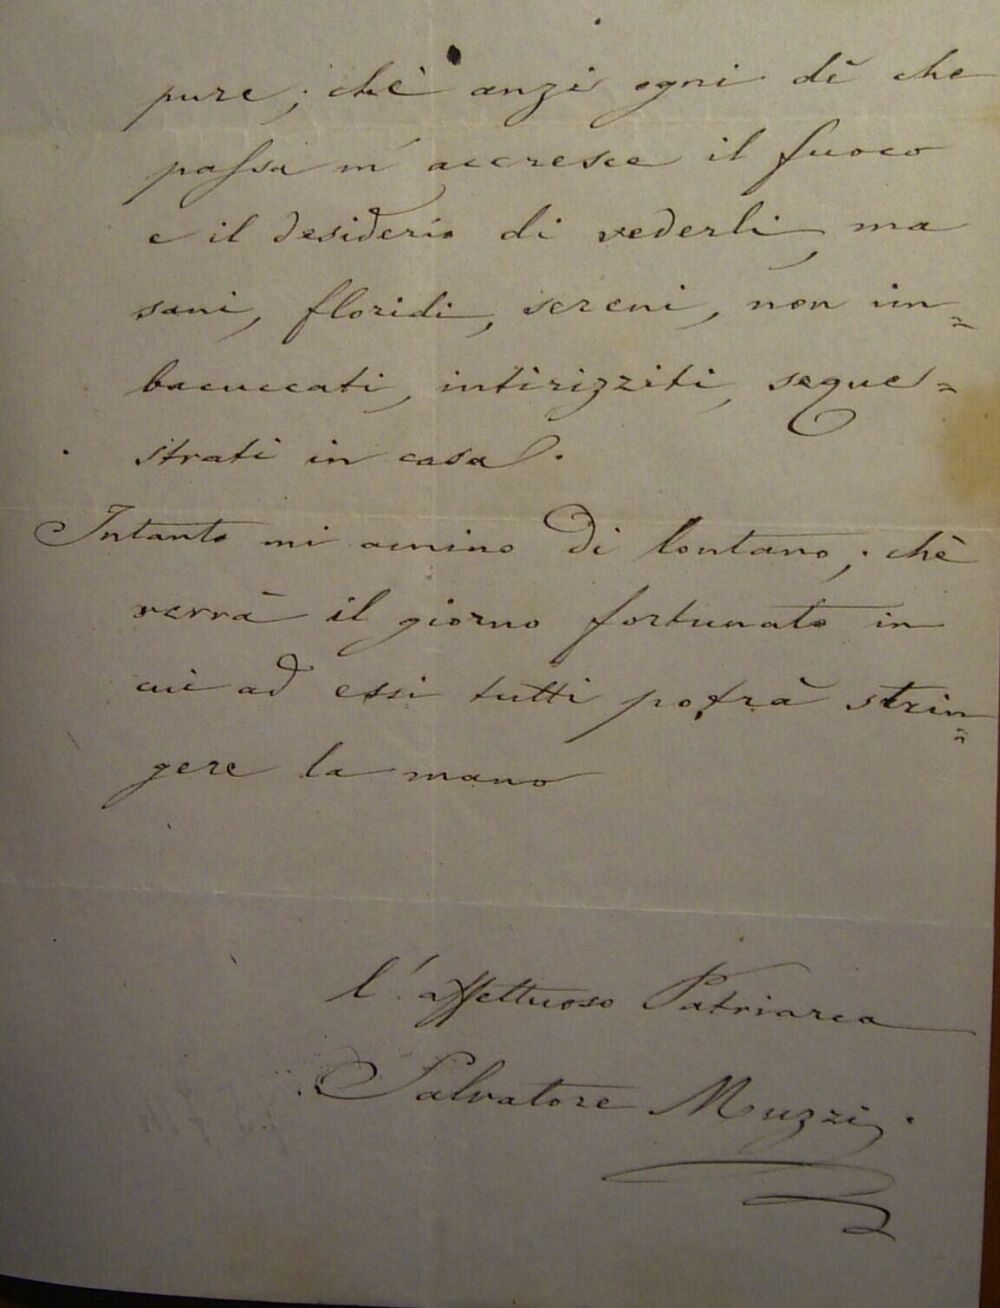 pure; chè anzi ogni dì che
passa m'accresce il fuoco
e il desiderio di vederli, ma
sani, floridi, sereni, non im=
bacuccati, intirizziti, seque=
strati in casa.
Intanto mi amino di lontano; chè
verrà il giorno fortunato in
cui ad essi tutti potrà strin=
gere la mano
l'affettuoso Patriarca
Salvatore Muzzi.